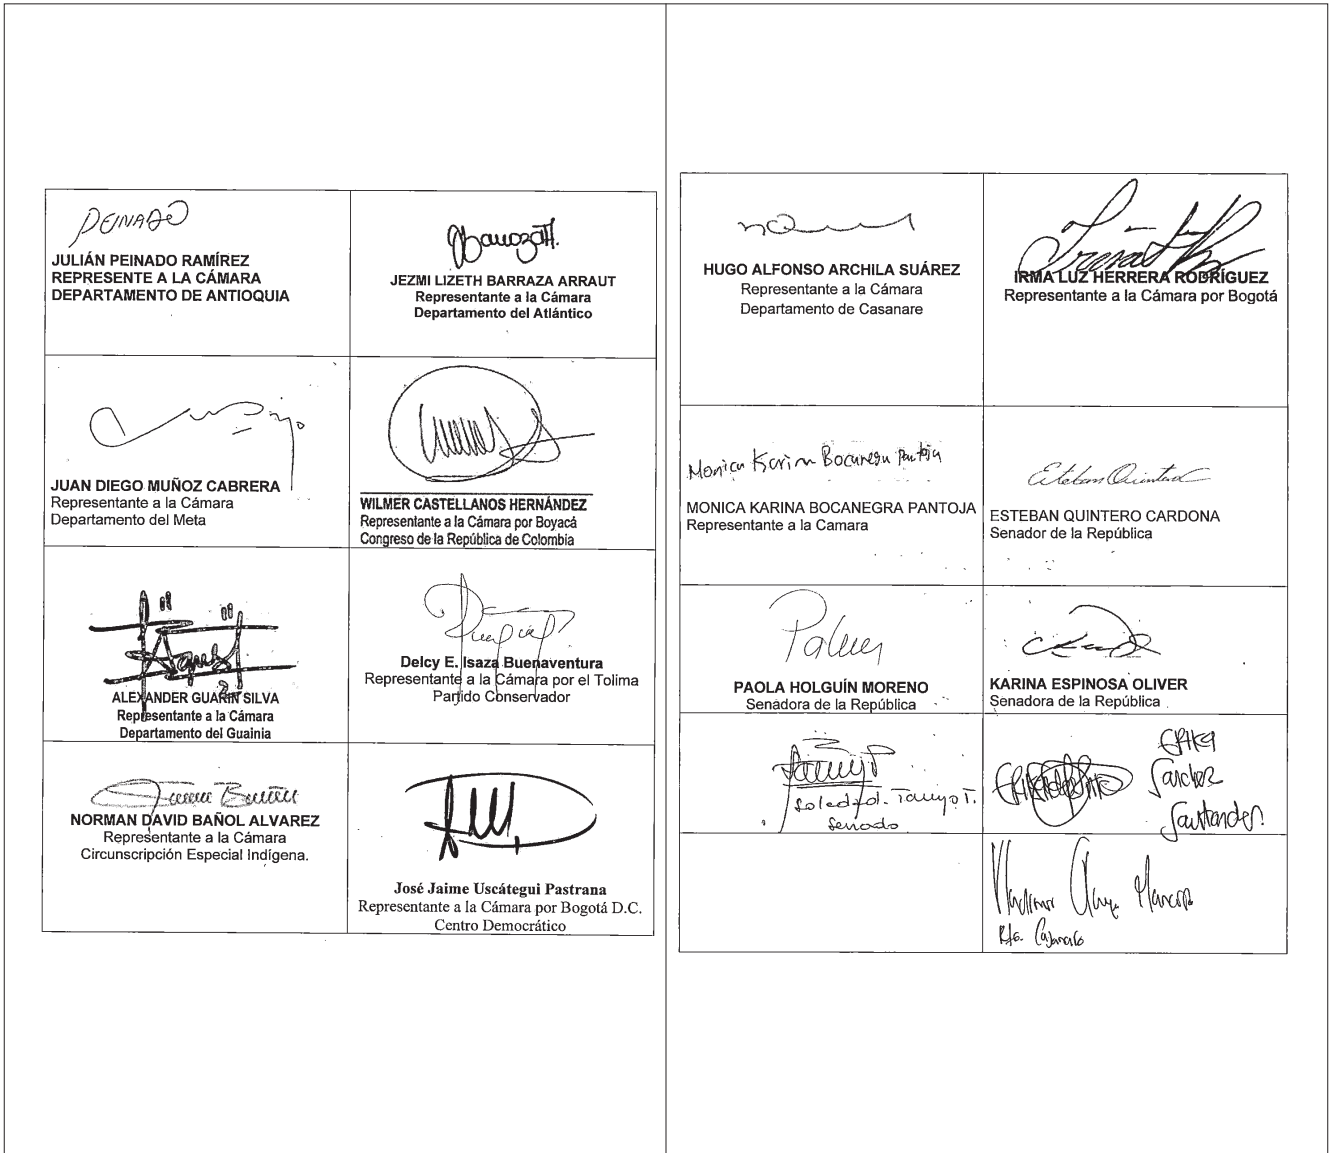 PEINADO
JULIÁN PEINADO RAMÍREZ
REPRESENTE A LA CÁMARA
DEPARTAMENTO DE ANTIOQUIA
JEZMI LIZETH BARRAZA ARRAUT
Representante a la Cámara
Departamento del Atlántico
JUAN DIEGO MUÑOZ CABRERA
Representante a la Cámara
Departamento del Meta
WILMER CASTELLANOS HERNÁNDEZ
Representante a la Cámara por Boyacá
Congreso de la República de Colombia
ALEXANDER GUARIN SILVA
Representante a la Cámara
Departamento del Guainia
Delcy E. Isaza Buenaventura
Representante a la Cámara por el Tolima
Partido Conservador
NORMAN DAVID BAÑOL ALVAREZ
Representante a la Cámara
Circunscripción Especial Indígena.
José Jaime Uscátegui Pastrana
Representante a la Cámara por Bogotá D.C.
Centro Democrático
HUGO ALFONSO ARCHILA SUÁREZ
Representante a la Cámara
Departamento de Casanare
IRMA LUZ HERRERA RODRÍGUEZ
Representante a la Cámara por Bogotá
Monica Karina Bocanegra Pantoja
MONICA KARINA BOCANEGRA PANTOJA
Representante a la Camara
Esteban Quintero
ESTEBAN QUINTERO CARDONA
Senador de la República
PAOLA HOLGUÍN MORENO
Senadora de la República
KARINA ESPINOSA OLIVER
Senadora de la República
Soledad. Tamayo T.
Senado
Erika
Sanchez
Santander.